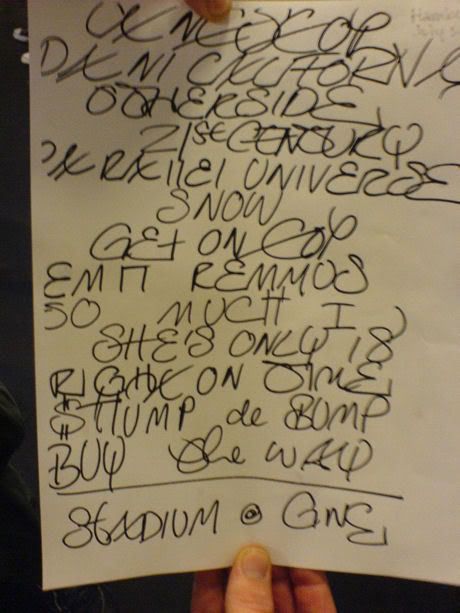 CXNT STOP
DXNI CXLIFORNIX
OTHERSIDE
21st CENTURY
PXRXLLEL UNIVERSE
SNOW
GET ON TOP
EMIT REMMUS
SO MUCH I
SHE'S ONLY 18
RIGHT ON TIME
$HUMP de BUMP
BUY the WAY
STADIUM